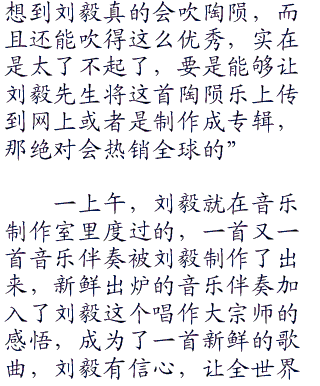 想到刘毅真的会吹陶陨，而
且还能吹得这么优秀，实在
是太了不起了，要是能够让
刘毅先生将这首陶陨乐上传
到网上或者是制作成专辑，
那绝对会热销全球的”
一上午，刘毅就在音乐
制作室里度过的，一首又一
首音乐伴奏被刘毅制作了出
来，新鲜出炉的音乐伴奏加
入了刘毅这个唱作大宗师的
感悟，成为了一首新鲜的歌
曲，刘毅有信心，让全世界